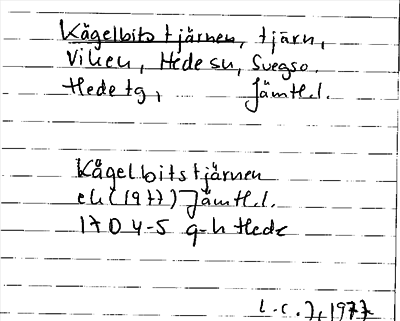 Kågelbitstjärnen, tjärn,
Viken, Hede sn, Svegs o.
Hede tg, Jämtl.l.
Kågelbitstjärnen
ek (1977) Jämtl.l.
17D 4-5 g-h Hede
L.C.J, 1977